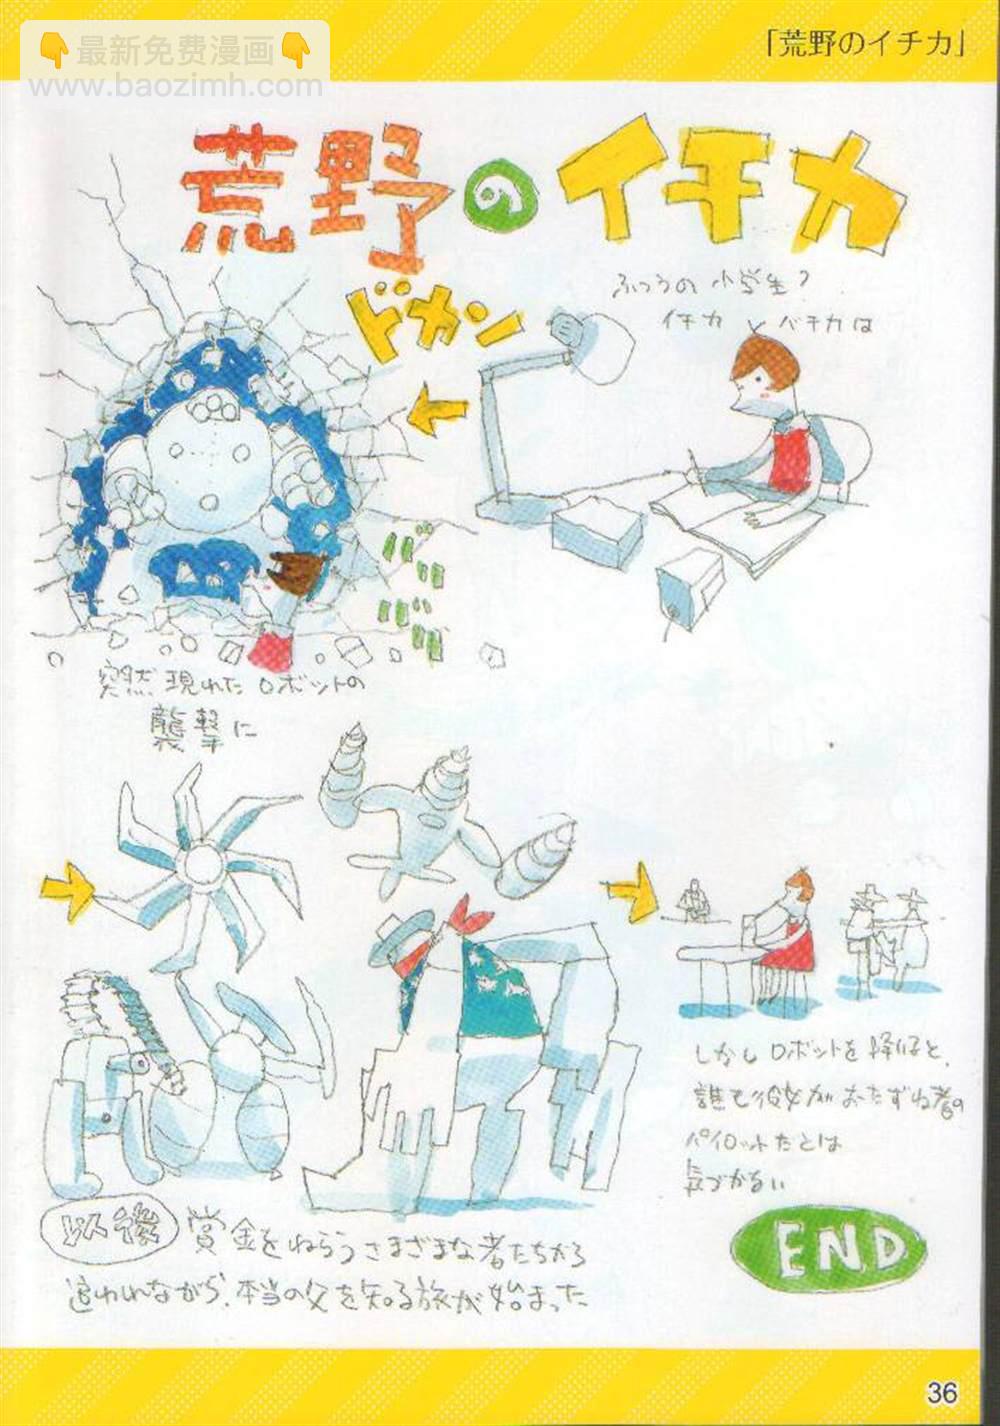 最新免费漫画
www.baozimh.com
「荒野のイチカ」
荒野のイチカ
ふつうの小学生?
イチカ バチカは
ドカン
ババ
ババ
突然現れたロボットの
襲撃に
しかしロボットを降りると、
誰も彼女がおたずね者の
パイロットだとは
気づかない
以後 賞金をねらうさまざまな者たちから
追われながら、本当の父を知る旅が始まった
END
36